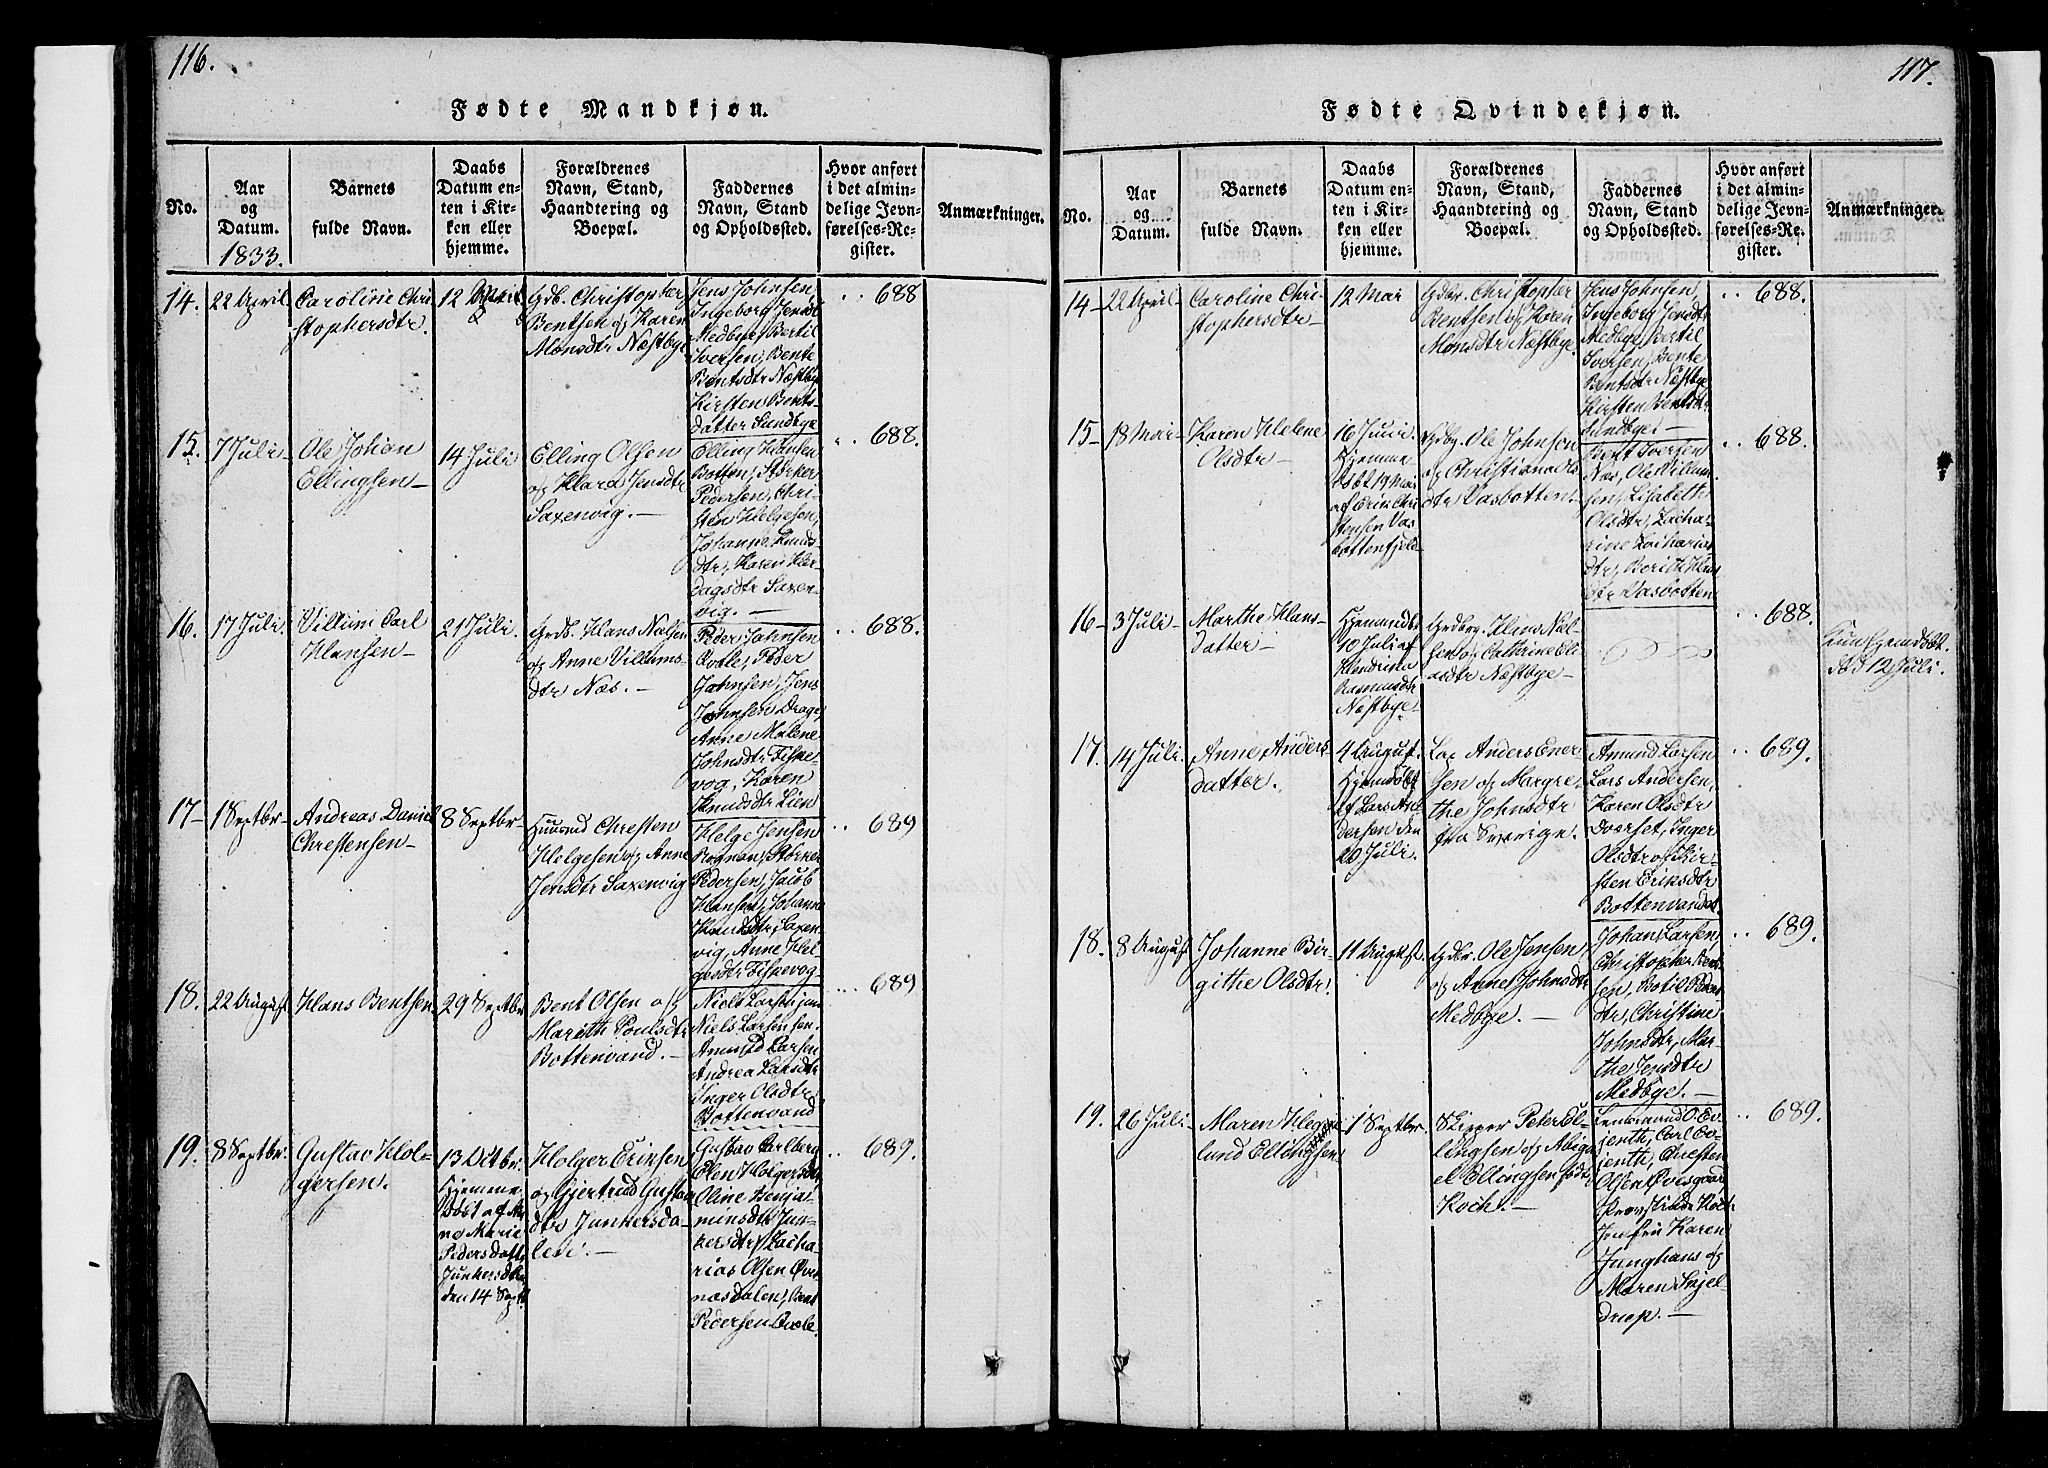 116.
Fødte Mandkjøn.
No.
Aar
og
Datum.
1833.
Barnets
fulde Navn.
Daabs
Datum en-
ten i Kir-
ken eller
hjemme.
Forældrenes
Navn, Stand,
Haandtering og
Boepæl.
Faddernes
Navn, Stand
og Opholdssted.
Hvor anført
i det almin-
delige Jevn-
førelses-Re-
gister.
Anmærkninger.
14.
22 April
Caroline Chri-
stophersdtr.
12
Grdb. Christopher
Bentsen og Karen
Monsdtr Næstbye
Jens Johnsen
Ingeborg Jensdtr
Medbye, Bertil
Iversen, Bente
Bentsdtr Næstbye
Kirsten Bents-
datter Sundbye
688
15.
7 Juli
Ole Johan
Ellingsen
14 Juli
Elling Olsen
og Klara Jensdtr
Saxenvig.
Elling Hansen
Botten, Størker
Pedersen, Chri-
sten Helgesen,
Johanne Knuds-
dtr, Karen Hær-
dagsdtr Saxen-
vig.
688.
16.
17 Juli.
Villum Carl
Hansen
21 Juli.
Grdb. Hans Nielsen
og Anne Villums-
dtr Næs.
Peder Johnsen
Peder
Johnsen, Jens
Johnsen Drage,
Anne Malene
Johnsdtr Fiske-
vog, Karen
Knudsdtr Lien
688.
17
1 Septbr
Andreas Daniel
Chrestensen
8 Septbr
Huusmd Chresten
Helgesen og Anne
Jensdtr Saxenvig
Helge Jensen
Rognan, Størker
Pedersen, Jacob
Hansen, Johanne
Knudsdtr, Saxen-
vig, Anne Hel-
gesdtr Fiskevog
689
18.
22 August
Hans Bentsen
29 Septbr
Bent Olsen og
Mareth Poulsdtr
Bottenvand.
Niels Larsen jun
Niels Larsen sen.
Amund Larsen
Andrea Larsdtr
Inger Olsdtr
Bottenvand
689
19.
8 Septbr.
Gustav Hol-
gersen.
13 Octbr.
Hjemme-
døbt af An-
ne Marie
Pedersdatter
Junkersdalen
den 14 Sept
Holger Ericksen
og Gjertrud Gustav
dtr Junkersda-
len.
Gustav Carlberg
Elen Holgersdtr
Oline Benja-
minsdtr Jun-
kersdtr, Zacha-
rias Olsen Øver-
næsdalen, Bent
Pedersen
689.
117.
Fødte Qvindekjøn.
No.
Aar
og
Datum.
Barnets
fulde Navn.
Daabs
Datum en-
ten i Kir-
ken eller
hjemme.
Forældrenes
Navn, Stand,
Haandtering og
Boepæl.
Faddernes
Navn, Stand
og Opholdssted.
Hvor anført
i det almin-
delige Jevn-
førelses-Re-
gister.
Anmærkninger.
14
22 April
Caroline Chri-
stophersdtr
12 Mai
Grdbr. Christopher
Bentsen og Karen
Monsdtr Næstbye.
Jens Johnsen,
Ingeborg Jensdtr
Medbye, Bertil
Iversen, Bente
Bentsdtr Næstbye
Kirsten Bentsdtr
Sundbye.
688.
15
18 Mai
Karen Helene
Olsdtr
16 Juni.
Hjemme
døbt 19 Mai
af Erik Chri
stensen Vas
bottenfjeld
Grdbr. Ole Johnsen
og Christiana Ols
dtr Vasbotten.
Bent Iversen
Næs, Ole Villum-
sen, Lisabeth
Olsdtr, Zacha-
rine Zacharias
dtr, Berit Hans
dtr Vasbotten
688.
16
3 Juli
Marthe Hans-
datter
Hjemmedøbt
10 Juli af
Hendrina
Rasmusdtr
Næstbye.
Grdbrg. Hans Niel-
sen og Cathrine Eli
asdtr Næstbye
688.
Kun hjemdøbt.
død 12 Juli.
17.
14 Juli.
Anne Anders
datter.
4 August.
Hjemdøbt
af Lars An-
dersen den
20 Juli.
Lap Anders Ener-
sen og Margre-
the Johnsdtr
fra Sverige.
Amund Larsen
Lars Andersen,
Karen Olsdtr
Dverset, Inger
Olsdtr og Kir-
sten Eriksdtr
Bottenvandet
689.
18.
8 August
Johanne Bir-
githe Olsdtr.
11 August.
Grdbr. Ole Jensen
og Anne Johnsdtr
Medbye.
Johan Larsen,
Christopher Bent-
sen, Botil Peders
dtr, Christine
Johnsdtr, Mar-
the Jensdtr
Medbye.
689.
19.
26 Juli
Maren
lund Ellingsen
1 Septbr.
Skipper Peter El-
lingsen og Abiga
el Ellingsen født
Koch.
Ev-
jenth, Carl Ev-
jenth, Chresten
Olsen Øvisgaard
Provstinde Koch
Jomfru Karen
Junghans og
Maren Schjel-
drup.
689.